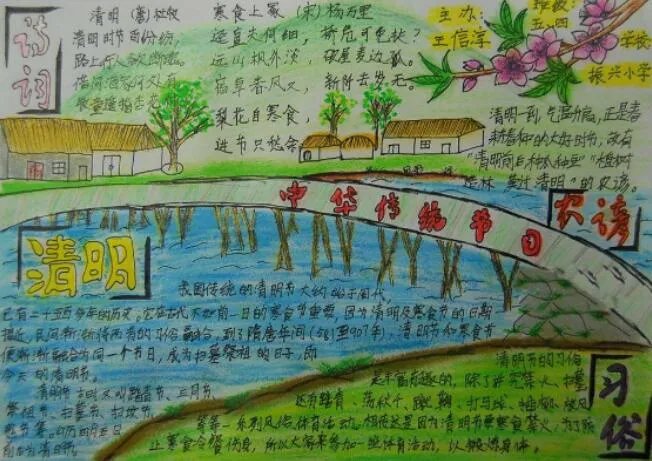 诗词
清明 (唐) 杜牧
清明时节雨纷纷
路上行人欲断魂
借问酒家何处有
牧童遥指杏花
寒食上冢 (宋) 杨万里
远山枫外淡，破屋麦边孤。
宿草春风又，新阡去岁无。
梨花自寒食，
进节只愁余
主办：
王信淳
班级：
五、四
学校
振兴小学
清明一到，气温升高，正是春
耕春种的大好时节，故有
"清明前后，种瓜种豆""植树
造林，莫过清明"的农谚。
农谚
中华传统节日
清明
我国传统的清明节大约始于周代，
已有二千五百多年的历史。
到了隋唐年间(581至907年)，清明节和寒食节
便渐渐融合为同一个节日，成为扫墓祭祖的日子，即
今天的清明节。
清明节古时又叫踏青节、三月节、
祭祖节、扫墓节、扫坟节、
习俗
清明节的习俗
是丰富有趣的，除了讲究禁火、扫墓，
还有踏青、荡秋千、蹴鞠、打马球、插柳
等等一系列风俗体育活动。相传这是因为清明节要寒食禁火，为了防
止寒食冷餐伤身，所以大家来参加一些体育活动，以锻炼身体。